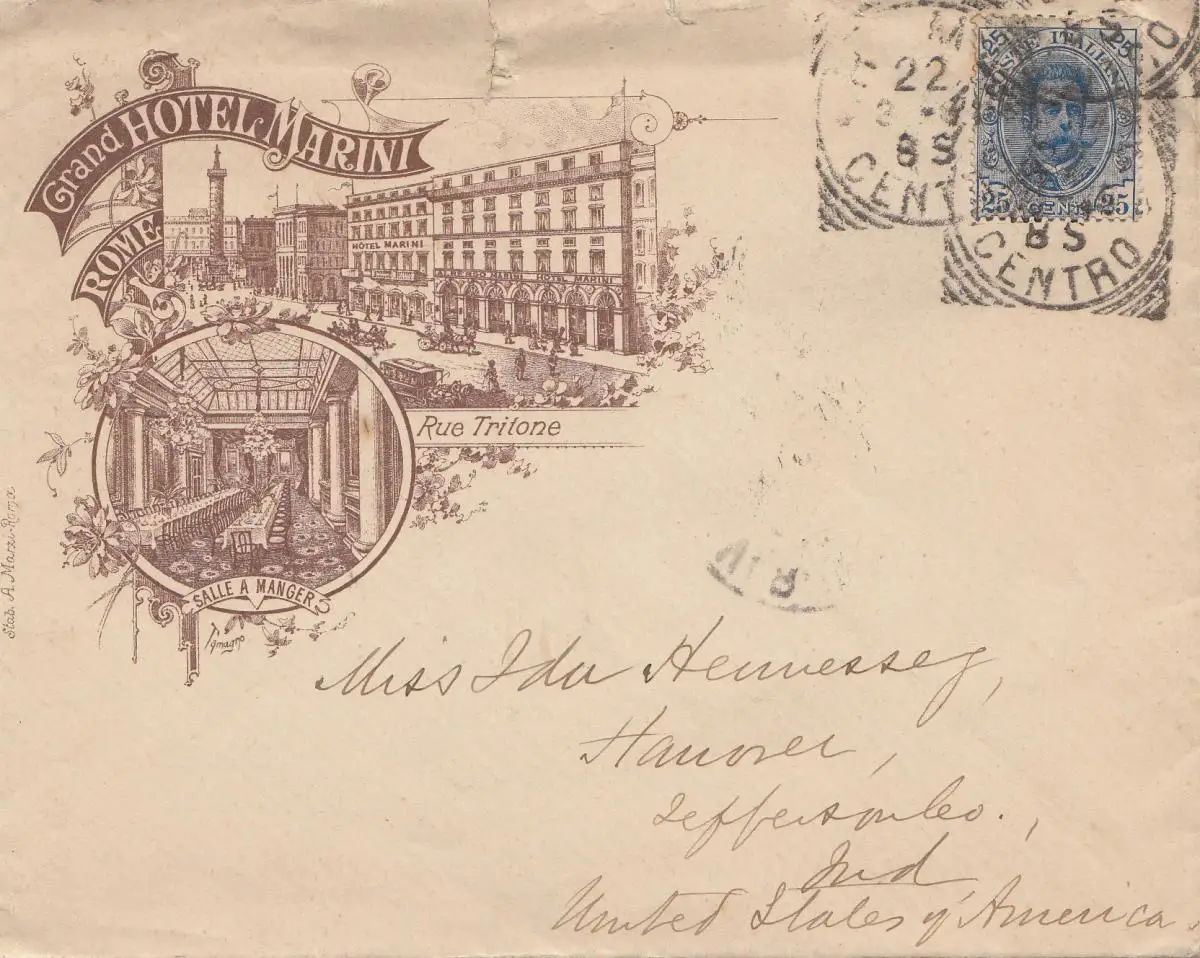 Grand HOTEL MARINI
ROME
HOTEL MARINI
Rue Tritone
SALLE A MANGER
Stab. A. Marzi-Roma
POSTE ITALIANE
25 25
25 CENT 25
22
8S
CENTRO
8S
CENTRO
Miss Ida Hennessey,
Hanover,
Jefferson Co.,
Ind
United States of America.